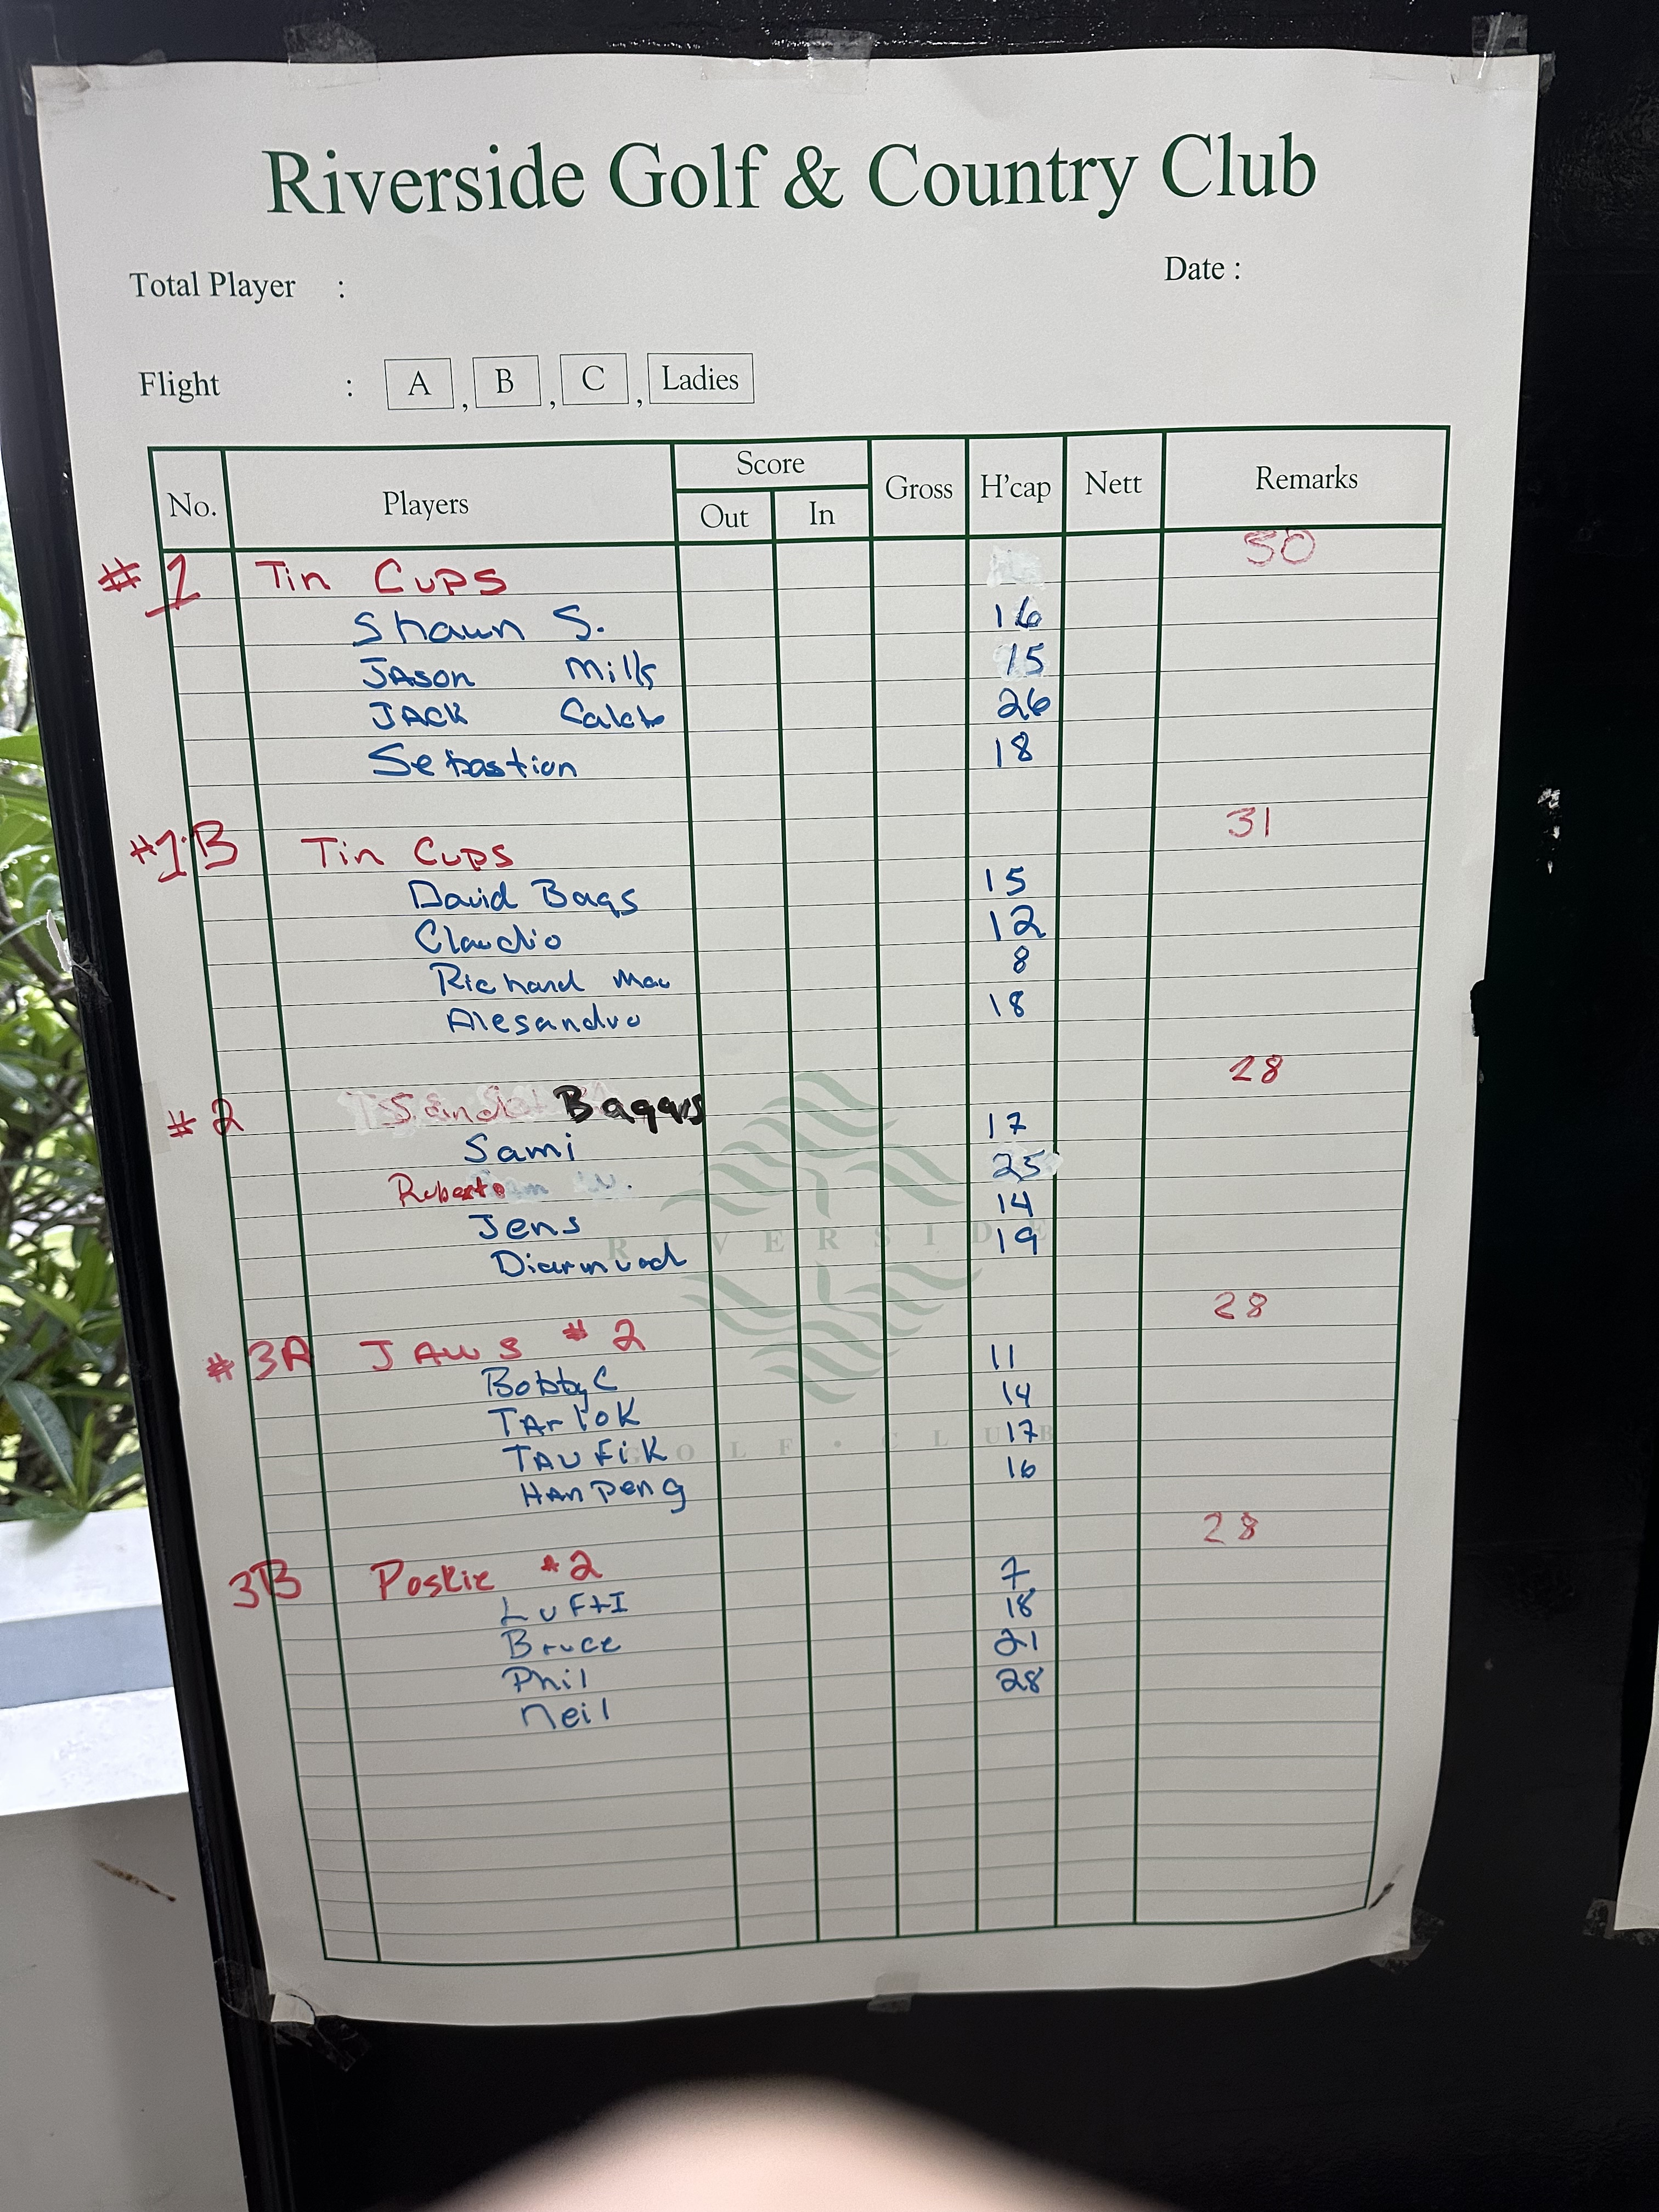 Riverside Golf & Country Club
Total Player :
Date :
Flight : A , B , C , Ladies
No. Players Score Gross H'cap Nett Remarks
Out In
#1 Tin Cups 50
Shawn S. 16
JASON Mills 15
JACK 26
Sebastian 18
#1B Tin Cups 31
David Bags 15
Claudio 12
Richard Mac 8
Alesandro 18
#2 28
Sami 17
Roberto 25
Jens 14
Diarmuod 19
#3A JAWS #2 28
Bobby C 11
TArloK 14
TAUFiK 17
HAN Peng 16
3B Poskie #2 28
LuFtI 7
Bruce 18
Phil 21
Neil 28
RIVERSIDE
GOLF • CLUB